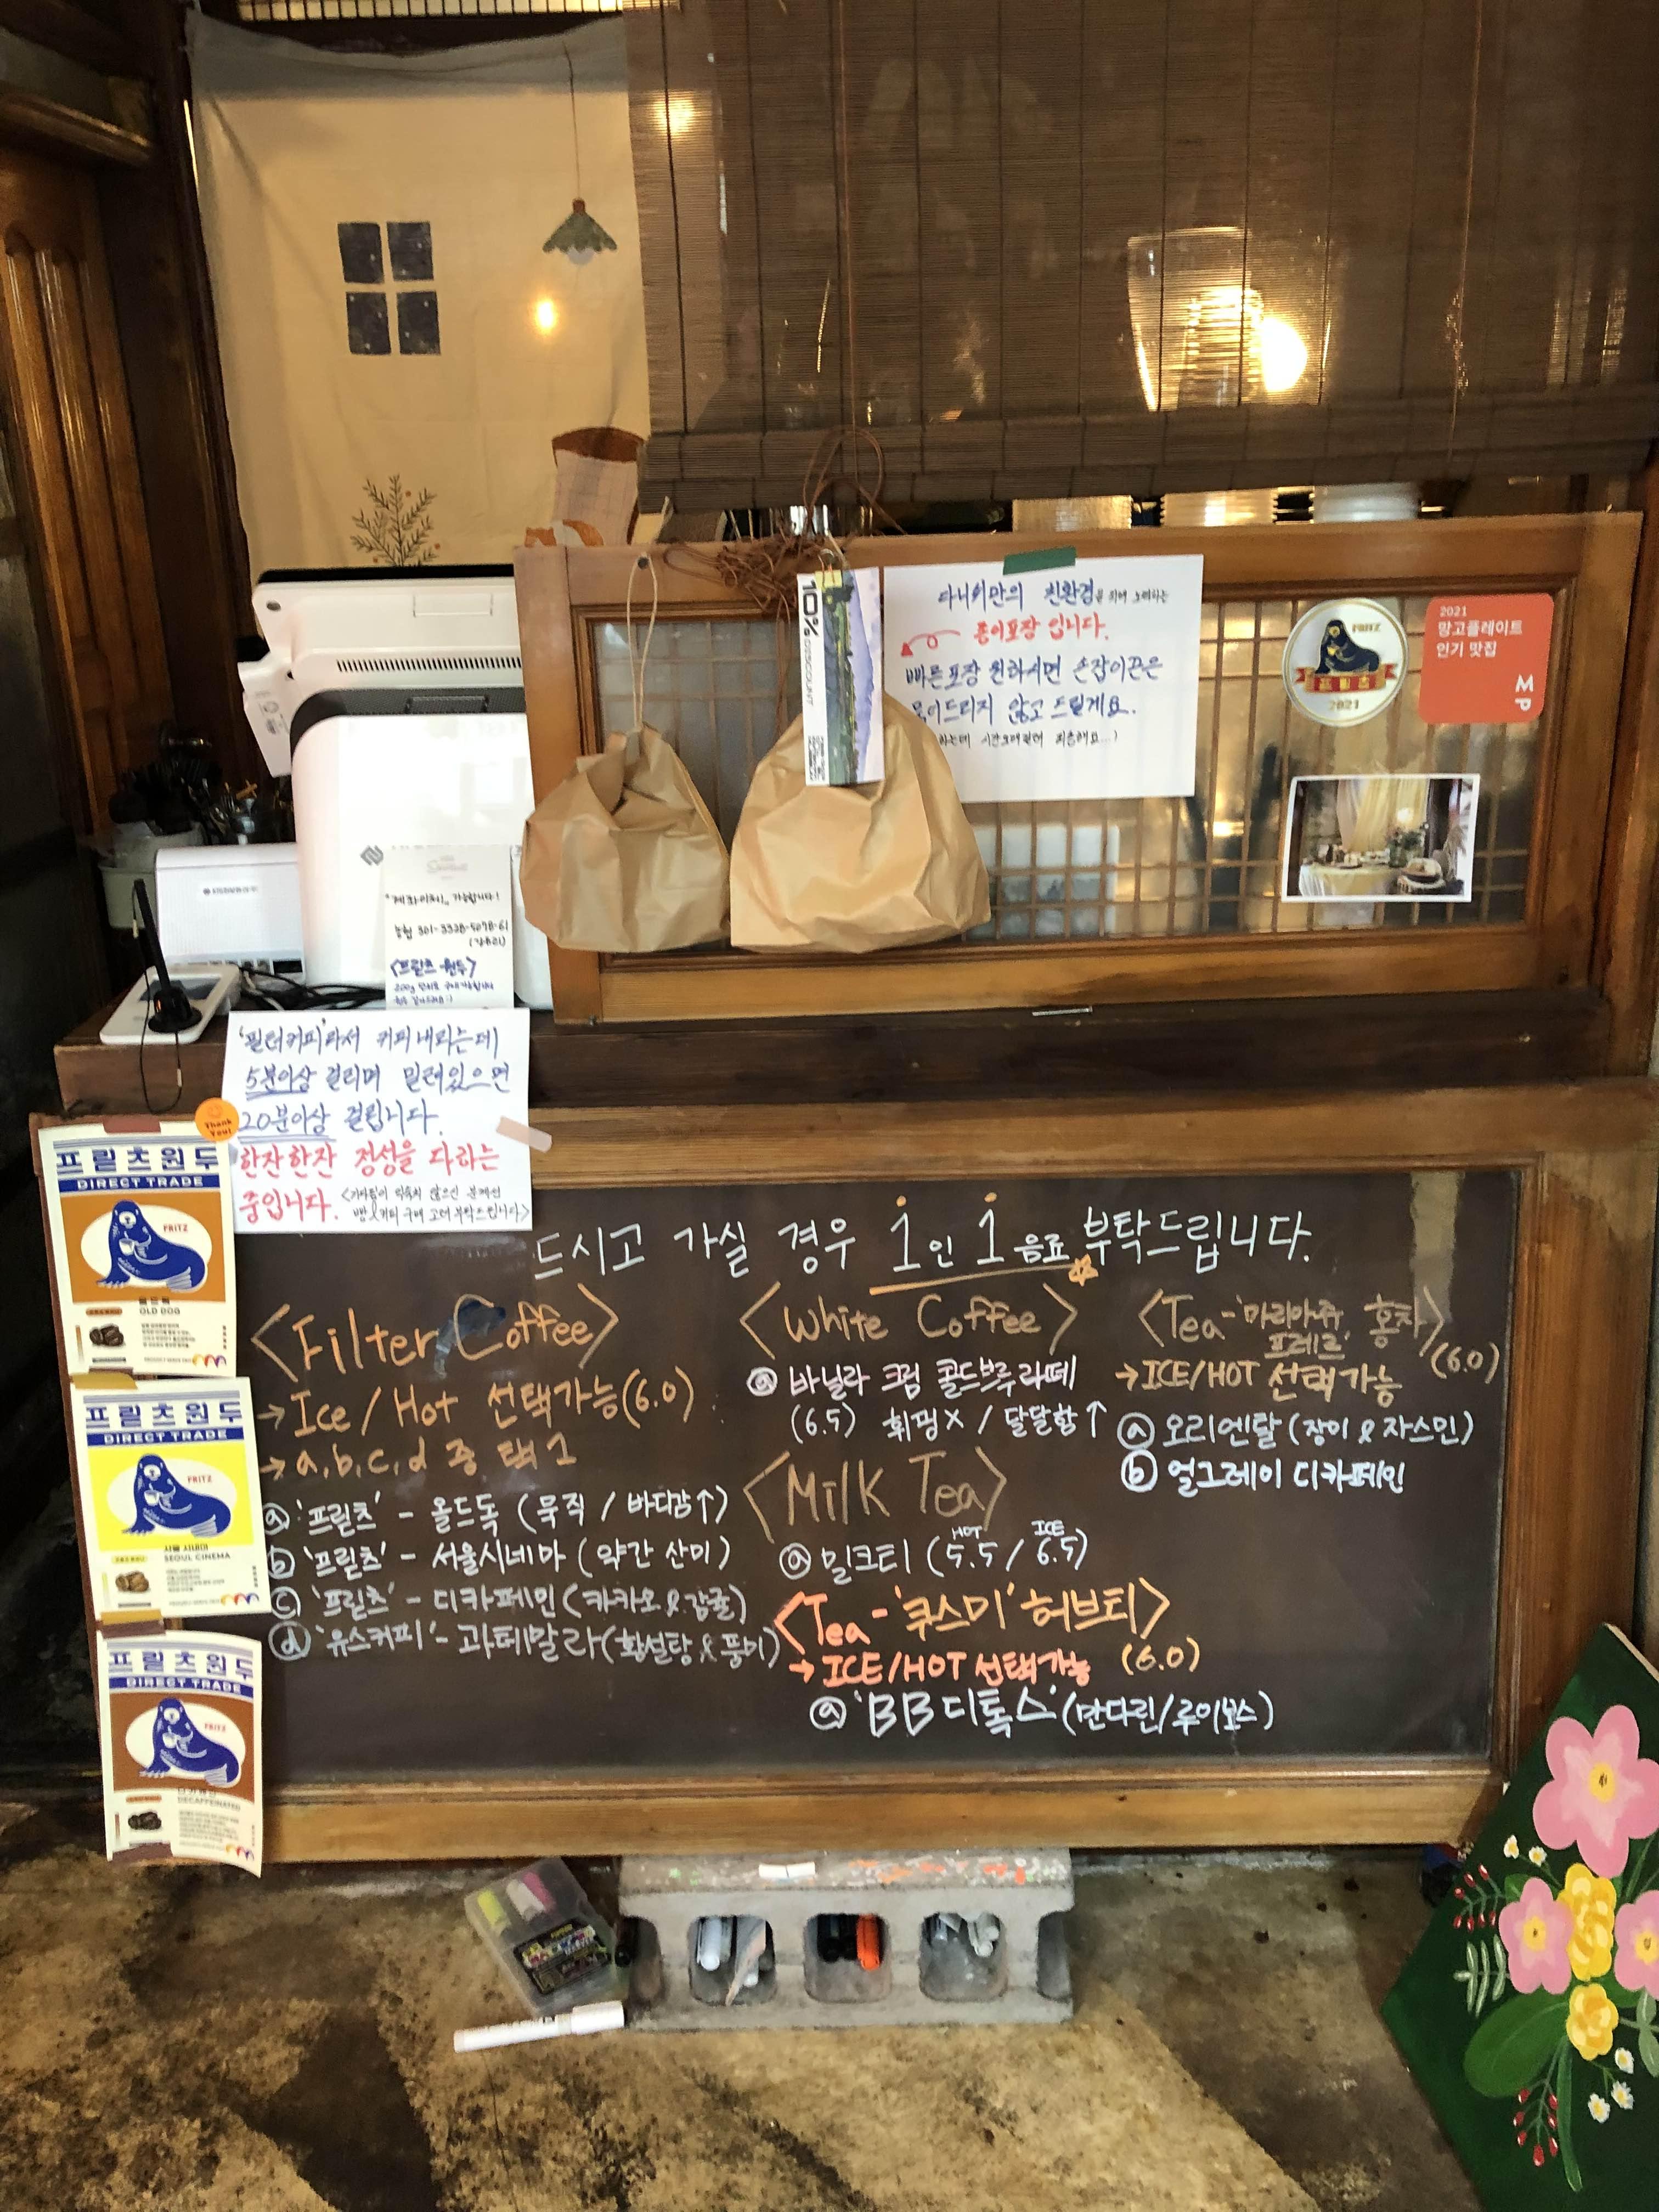 10% DISCOUNT
다니쉬만의 친환경을 위해 노력하는
종이포장 입니다.
빠른포장 원하시면 손잡이끈은
묶어드리지 않고 드릴게요.
FRITZ
프릳츠
2021
2021
망고플레이트
인기 맛집
MP
"계좌이체" 가능합니다!
농협 301-3328-5078-61
<프릳츠 원두>
'필터커피'라서 커피내리는데
5분이상 걸리며 밀려있으면
20분이상 걸립니다.
한잔한잔 정성을 다하는
중입니다.
Thank
You!
프릳츠원두
DIRECT TRADE
FRITZ
올드독
OLD DOG
프릳츠원두
DIRECT TRADE
FRITZ
서울 시네마
SEOUL CINEMA
프릳츠원두
DIRECT TRADE
FRITZ
DECAFFEINATED
드시고 가실 경우 1인 1음료 부탁드립니다.
<Filter Coffee>
→Ice / Hot 선택가능(6.0)
→a,b,c,d 중 택1
ⓐ '프릳츠' - 올드독 (묵직 / 바디감↑)
ⓑ '프릳츠' - 서울시네마 (약간 산미)
ⓒ '프릳츠' - 디카페인 (카카오&감귤)
ⓓ '유스커피' - 과테말라 (황설탕&풍미)
<White Coffee>
ⓐ 바닐라 크림 콜드브루라떼
(6.5) 휘핑X / 달달함↑
<Milk Tea>
HOT ICE
ⓐ 밀크티 (5.5 / 6.5)
<Tea-'쿠스미' 허브티>
→ICE/HOT 선택가능 (6.0)
ⓐ 'BB디톡스' (만다린/루이보스)
<Tea-'마리아쥬
프레르' 홍차>
(6.0)
→ICE/HOT 선택가능
ⓐ 오리엔탈 (장미&자스민)
ⓑ 얼그레이 디카페인